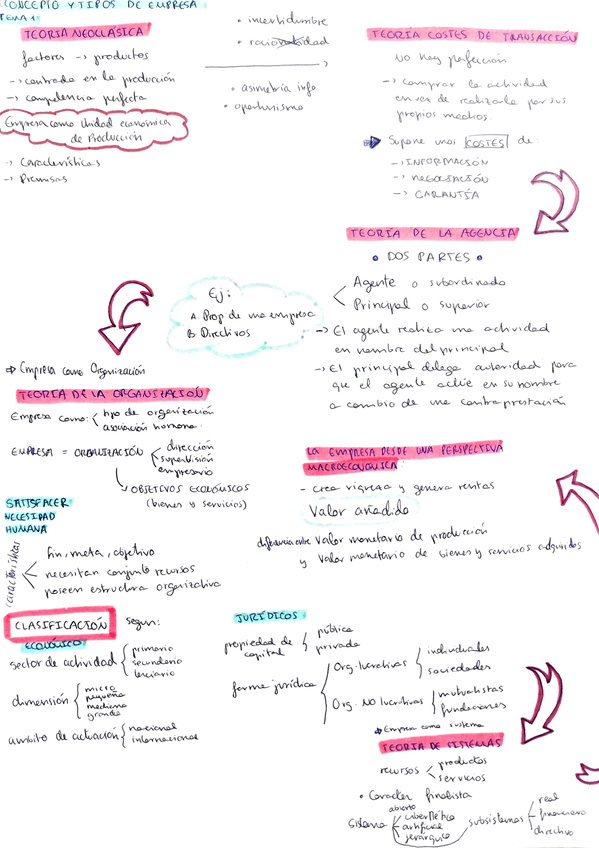 CONCEPTO Y TIPOS DE EMPRESA:
TEMA 1:
TEORÍA NEOCLÁSICA
factores → productos
→ centrada en la producción
→ competencia perfecta
Empresa como Unidad económica
de Producción
→ Características
→ Premisas
• incertidumbre
• racionalidad
• asimetría info
• oportunismo
TEORÍA COSTES DE TRANSACCIÓN
No hay perfección
→ comprar la actividad
en vez de realizarla por sus
propios medios.
Supone unos COSTES de:
→ INFORMACIÓN
→ NEGOCIACIÓN
→ GARANTÍA
TEORÍA DE LA AGENCIA
• DOS PARTES •
Agente o subordinado
Principal o superior
→ El agente realiza una actividad
en nombre del principal
→ El principal delega autoridad para
que el agente actúe en su nombre
a cambio de una contraprestación
Ej:
A. Prop de una empresa
B. Directivos
Empresa como Organización
TEORÍA DE LA ORGANIZACIÓN
Empresa como: tipo de organización
asociación humana.
EMPRESA = ORGANIZACIÓN
dirección
supervisión
empresario
OBJETIVOS ECONÓMICOS
(bienes y servicios)
SATISFACER
NECESIDAD
HUMANA
características
fin, meta, objetivo
necesitan conjunto recursos
poseen estructura organizativa
LA EMPRESA DESDE UNA PERSPECTIVA
MACROECONÓMICA
- crea riqueza y genera rentas
Valor añadido
diferencia entre valor monetario de producción
y valor monetario de bienes y servicios adquiridos
CLASIFICACIÓN según:
ECONÓMICO
sector de actividad
primario
secundario
terciario
dimensión
micro
pequeña
mediana
grande
ámbito de actuación
nacional
internacional
JURÍDICOS:
propiedad de
capital
pública
privada
forma jurídica
Org. lucrativas
individuales
sociedades
Org. NO lucrativas
mutualistas
fundaciones
Empresa como sistema
TEORÍA DE SISTEMAS
recursos
productos
servicios
• Carácter finalista
Sistema
abierto
cibernético
artificial
jerárquico
subsistemas
real
financiero
directivo